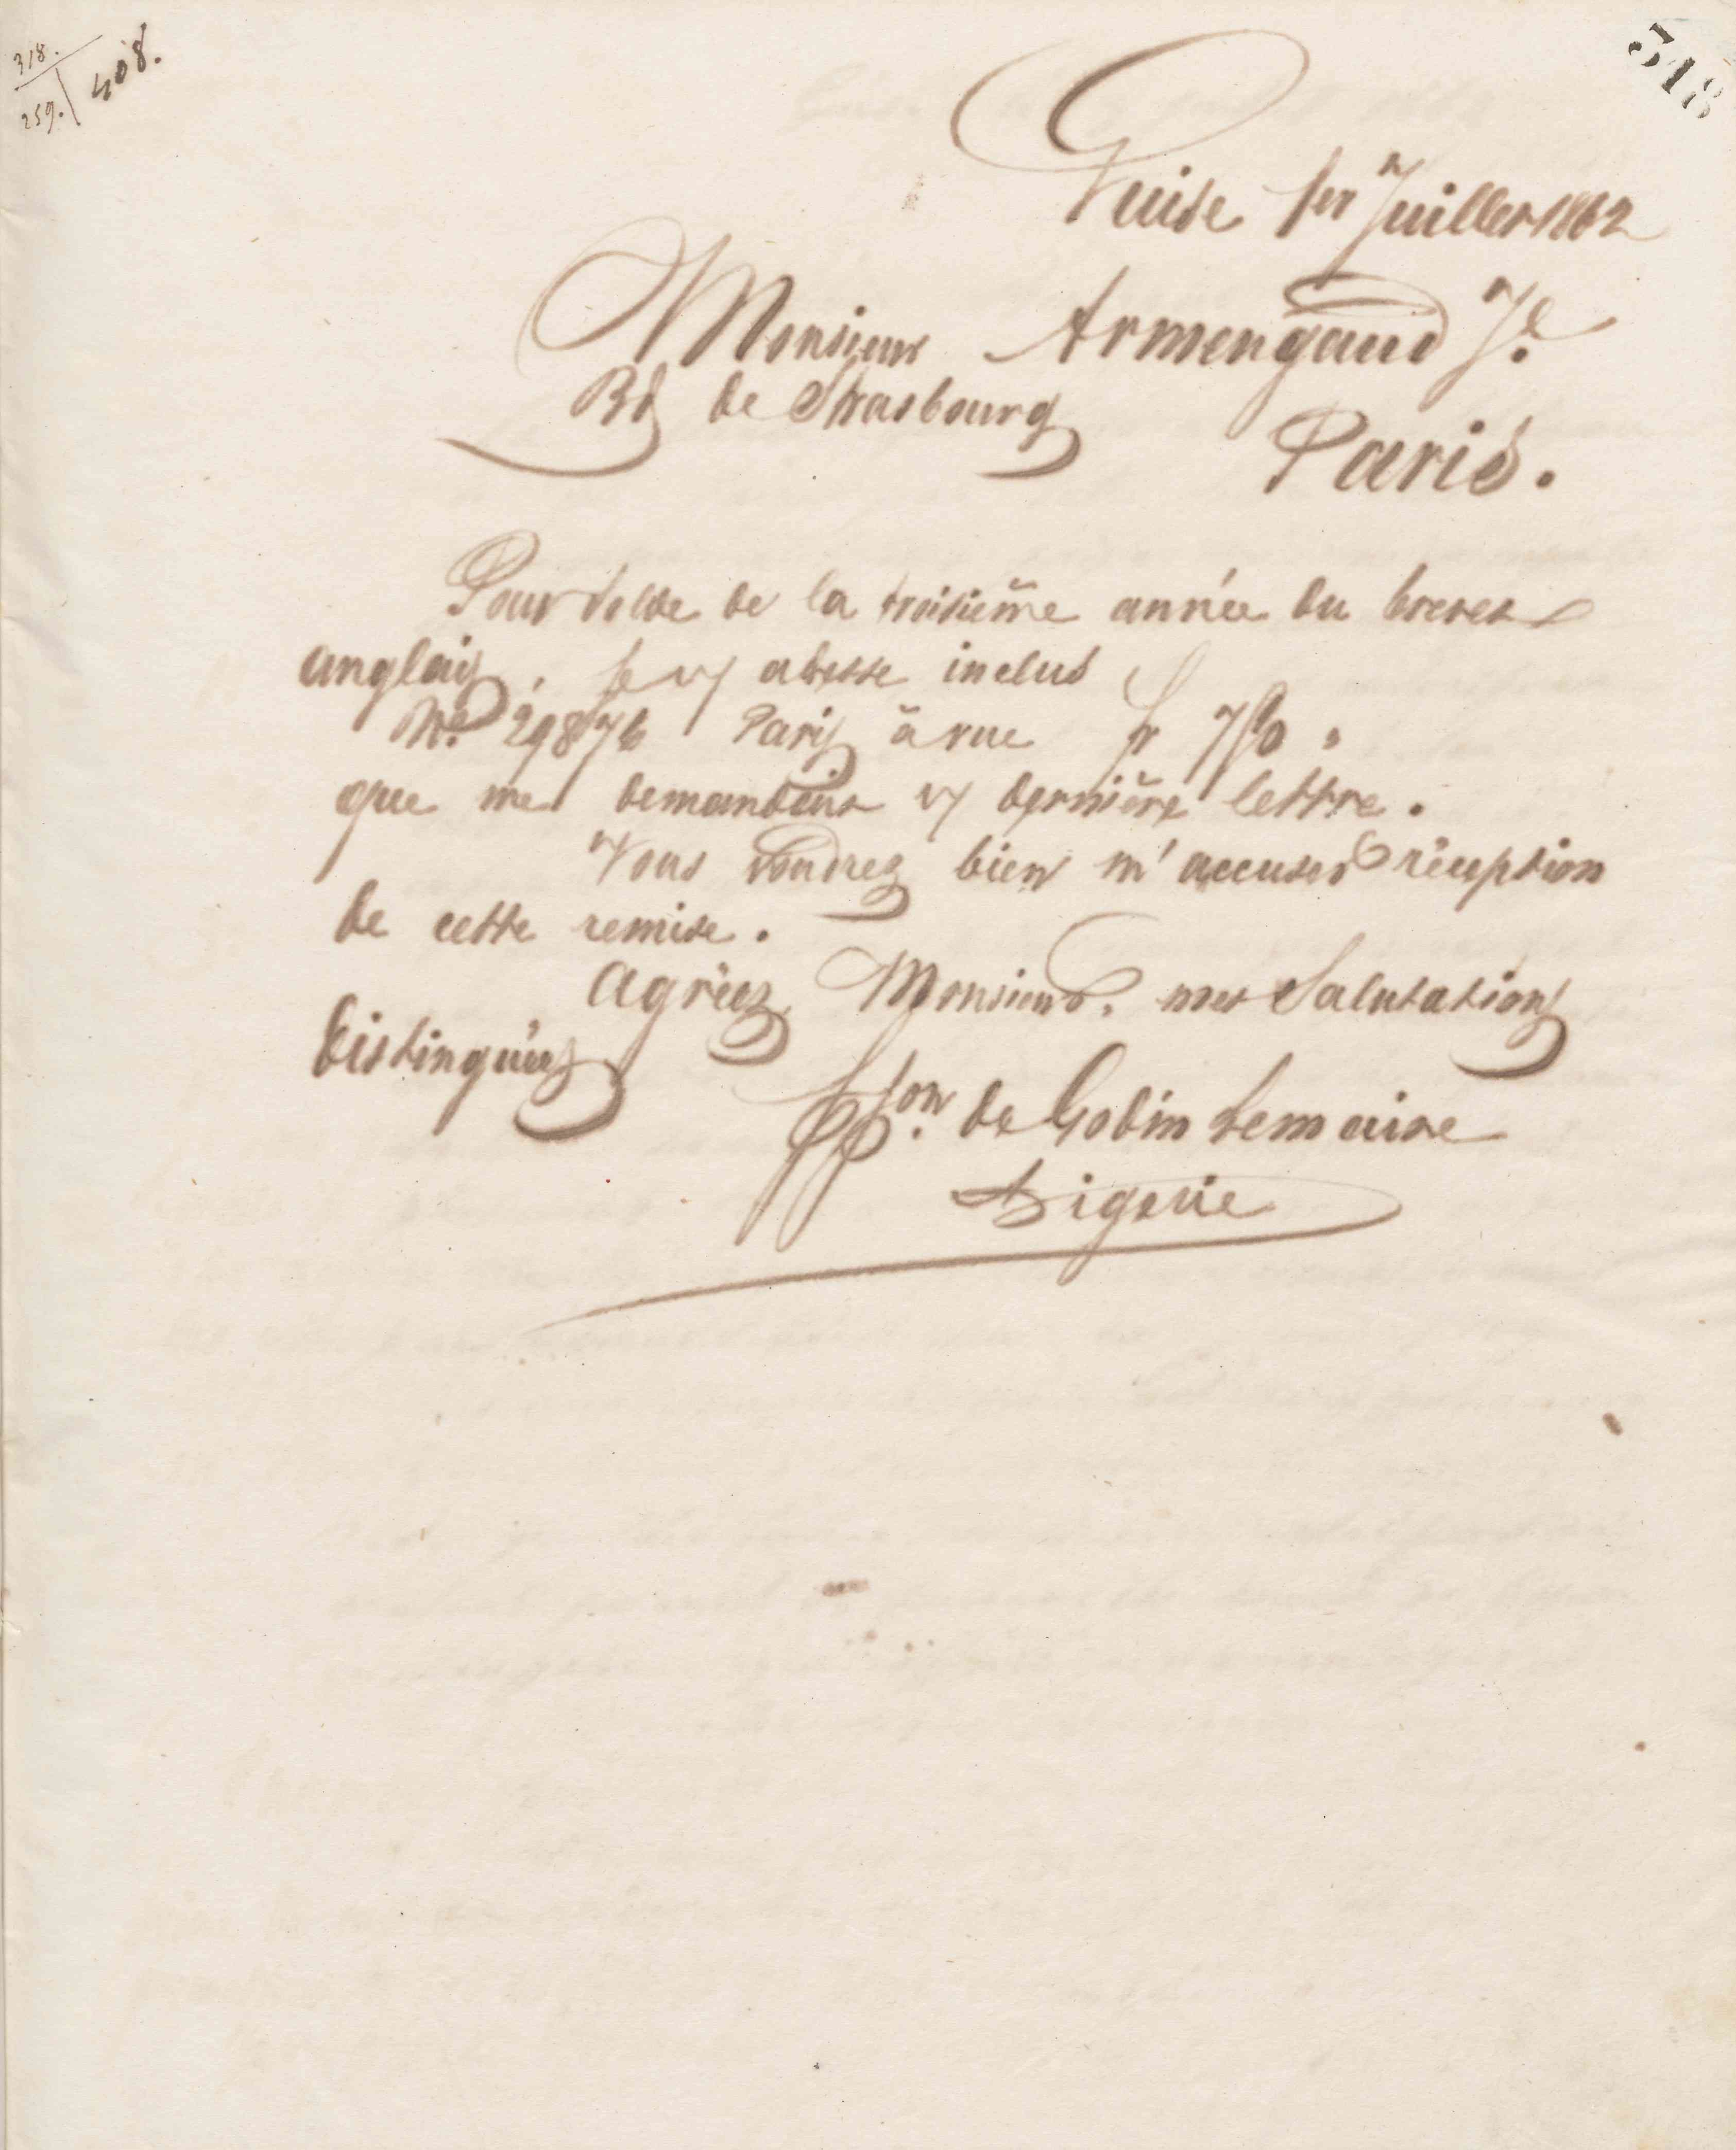 318.
259.
408.
318
Guise 1er Juillet 1862
Monsieur Armengaud Je
Bd de Strasbourg
Paris.
Pour solde de la troisième année du brevet
anglais, je vs adresse inclus
No 29876 Paris à vue fr 750 "
que me demandait vs dernière lettre.
Vous voudrez bien m'accuser réception
de cette remise.
Agréez, Monsieur, mes Salutations
distinguées
ppon de Godin Lemaire